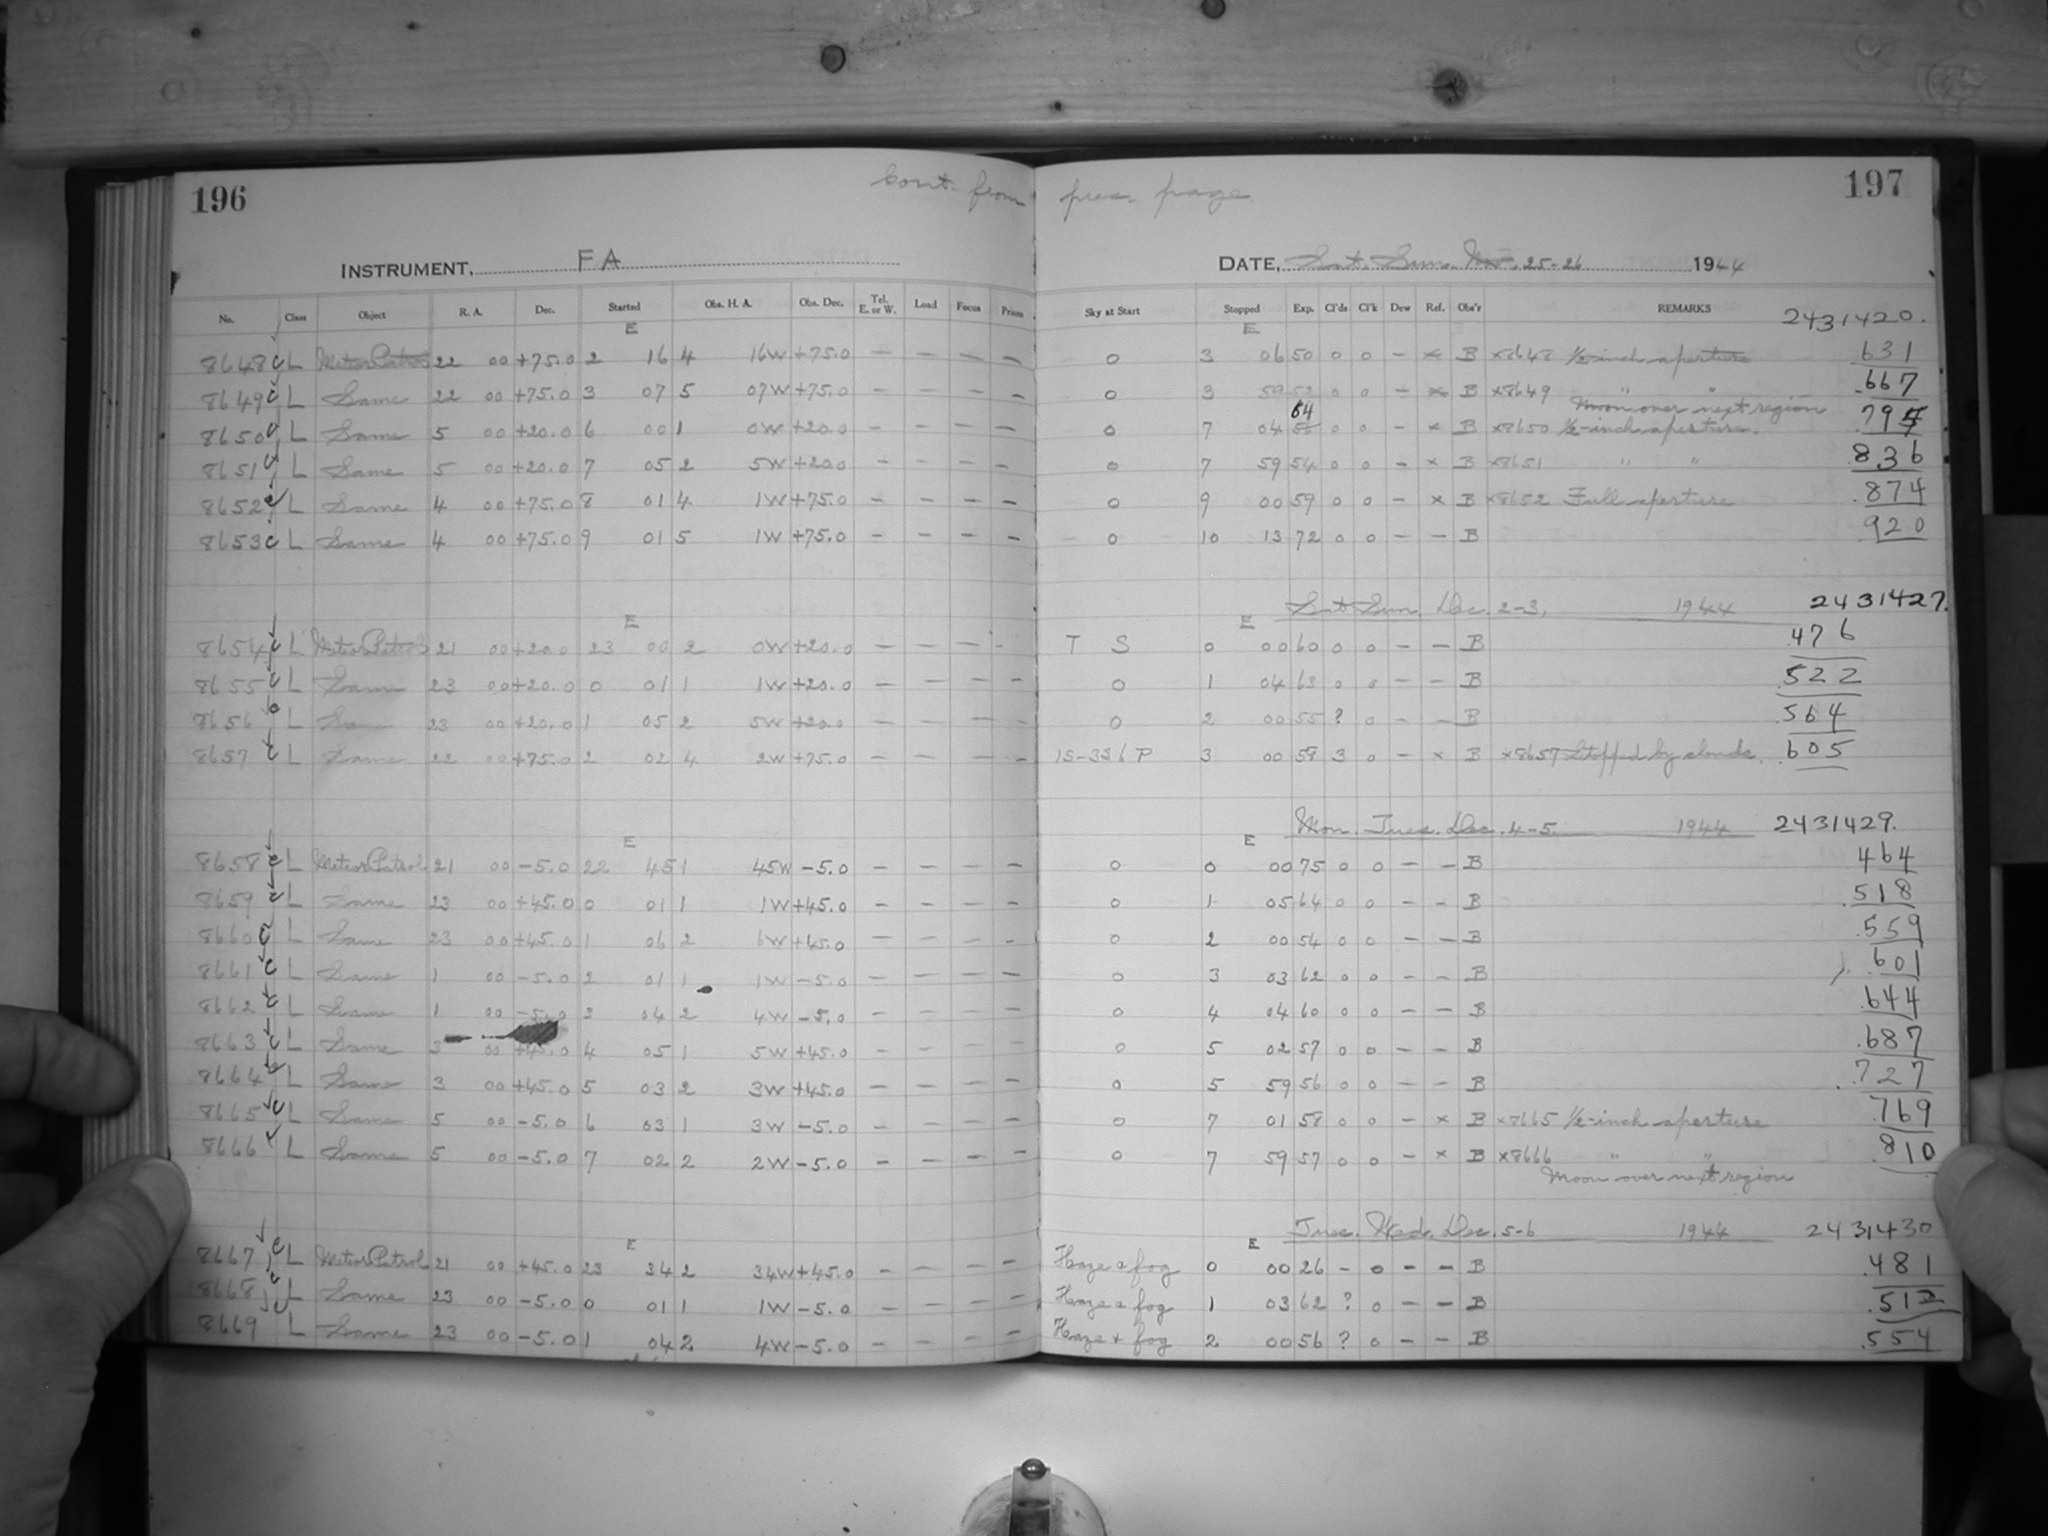 196
Cont. from prec. page.
197
INSTRUMENT, FA DATE, Sat. Sun. Nov. 25-26 1944
No. Class Object R. A. Dec. Started Obs. H. A. Obs. Dec. Tel. E. or W. Load Focus Prism Sky at Start Stopped Exp. Cl'ds Cl'k Dew Ref. Obs'r REMARKS 2431420.
E E
8648 c L Meteor Patrol 22 00 +75.0 2 16 4 16W +75.0 – – – – 0 3 06 50 0 0 – × B ×8648 ½-inch aperture 631
8649 c L Same 22 00 +75.0 3 07 5 07W +75.0 – – – – 0 3 0 0 – × B ×8649 " " .667
Moon over next region
8650 c L Same 5 00 +20.0 6 00 1 0W +20.0 – – – – 0 7 04 64 0 0 – × B ×8650 ½-inch aperture. .795
8651 c L Same 5 00 +20.0 7 05 2 5W +20.0 – – – – 0 7 59 54 0 0 – × B ×8651 " " .836
8652 c L Same 4 00 +75.0 8 01 4 1W +75.0 – – – – 0 9 00 59 0 0 – × B ×8652 Full aperture .874
8653 c L Same 4 00 +75.0 9 01 5 1W +75.0 – – – – 0 10 13 72 0 0 – – B 920
Sat. Sun. Dec. 2-3, 1944 2431427.
E E
8654 c L Meteor Patrol 21 00 +20.0 23 00 2 0W +20.0 – – – – T S 0 00 60 0 0 – – B .476
8655 c L Same 23 00 +20.0 0 01 1 1W +20.0 – – – – 0 1 04 63 0 0 – – B .522
8656 c L Same 23 00 +20.0 1 05 2 5W +20.0 – – – – 0 2 00 55 ? 0 – – B .564
8657 c L Same 22 00 +75.0 2 02 4 2W +75.0 – – – – 1S-3S6P 3 00 58 3 0 – × B ×8657 Stopped by clouds. .605
Mon. Tues. Dec. 4-5. 1944 2431429.
E E
8658 c L Meteor Patrol 21 00 –5.0 22 45 1 45W –5.0 – – – – 0 0 00 75 0 0 – – B .464
8659 c L Same 23 00 +45.0 0 01 1 1W +45.0 – – – – 0 1 05 64 0 0 – – B .518
8660 c L Same 23 00 +45.0 1 06 2 6W +45.0 – – – – 0 2 00 54 0 0 – – B .559
8661 c L Same 1 00 –5.0 2 01 1 1W –5.0 – – – – 0 3 03 62 0 0 – – B .601
8662 c L Same 1 00 –5.0 3 04 2 4W –5.0 – – – – 0 4 04 60 0 0 – – B .644
8663 c L Same 3 00 +45.0 4 05 1 5W +45.0 – – – – 0 5 02 57 0 0 – – B .687
8664 c L Same 3 00 +45.0 5 03 2 3W +45.0 – – – – 0 5 59 56 0 0 – – B .727
8665 c L Same 5 00 –5.0 6 03 1 3W –5.0 – – – – 0 7 01 58 0 0 – × B ×8665 ½-inch aperture .769
8666 L Same 5 00 –5.0 7 02 2 2W –5.0 – – – – 0 7 59 57 0 0 – × B ×8666 " " .810
Moon over next region
Tues. Wed. Dec. 5-6 1944 2431430
E E
8667 c L Meteor Patrol 21 00 +45.0 23 34 2 34W +45.0 – – – – Haze & fog 0 00 26 – 0 – – B .481
8668 c L Same 23 00 –5.0 0 01 1 1W –5.0 – – – – Haze & fog 1 03 62 ? 0 – – B .512
8669 c L Same 23 00 –5.0 1 04 2 4W –5.0 – – – – Haze + fog 2 00 56 ? 0 – – B .554